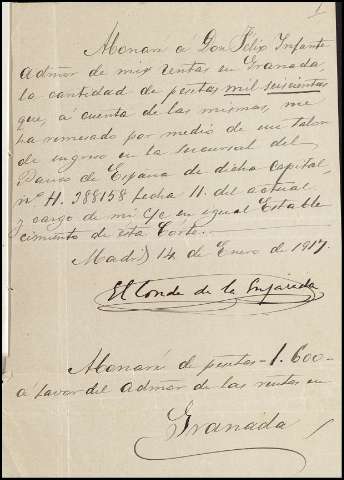 1
Abonaré á Don Félix Infante
Admor de mis rentas en Granada
la cantidad de pesetas mil seiscientas
que, a cuenta de las mismas, me
ha remesado por medio de un talon
de ingreso en la sucursal del
Banco de España de dicha Capital,
nº H. 388158 fecha 11. del actual
y cargo de mi c/c en igual Estable
cimiento de esta Córte.
Madrid 14 de Enero de 1917.
El Conde de la Enjarada
Abonaré de pesetas - 1.600 -
a favor del admor de las rentas en
Granada